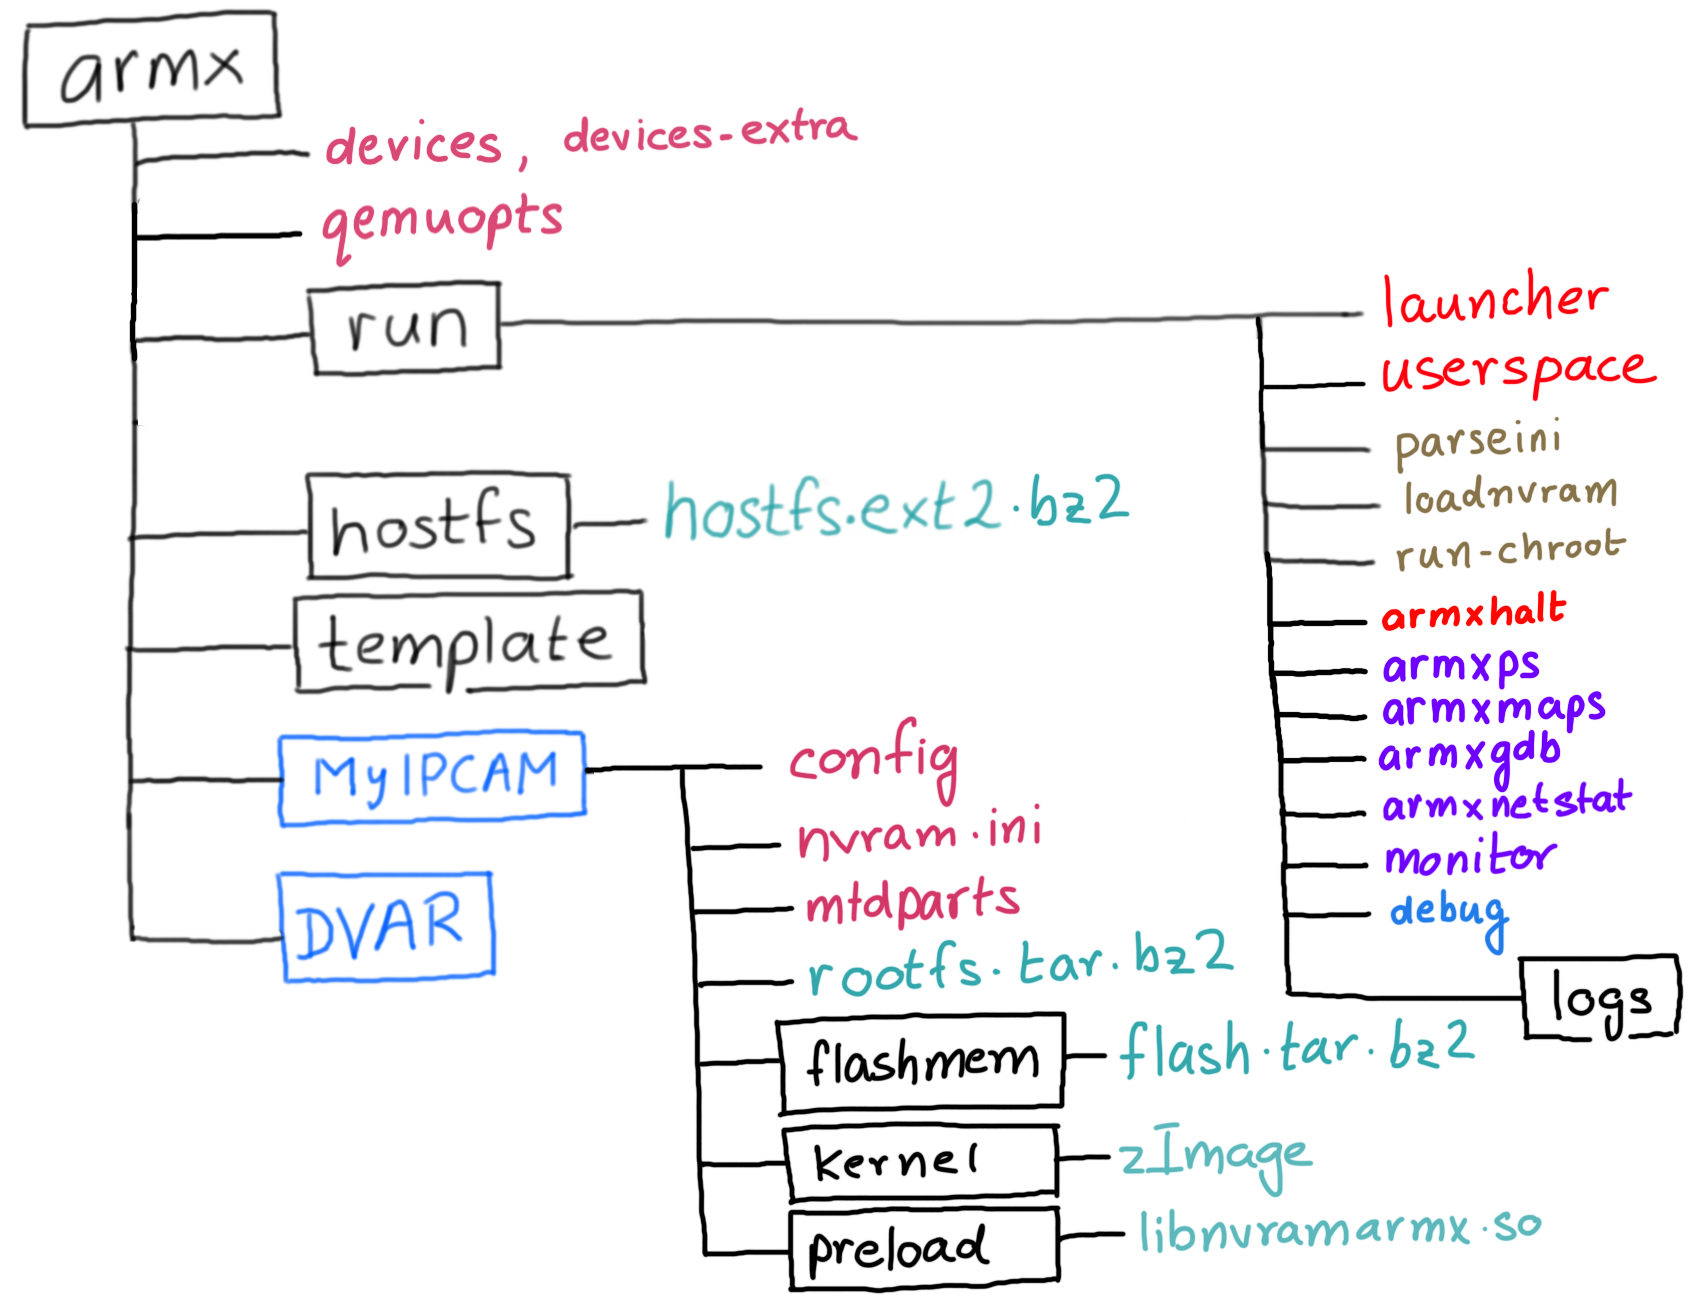 armx
devices, devices-extra
qemuopts
run
launcher
userspace
parseini
loadnvram
run-chroot
armxhalt
armxps
armxmaps
armxgdb
armxnetstat
monitor
debug
logs
hostfs
hostfs.ext2.bz2
template
MyIPCAM
config
nvram.ini
mtdparts
rootfs.tar.bz2
flashmem
flash.tar.bz2
kernel
zImage
preload
libnvramarmx.so
DVAR